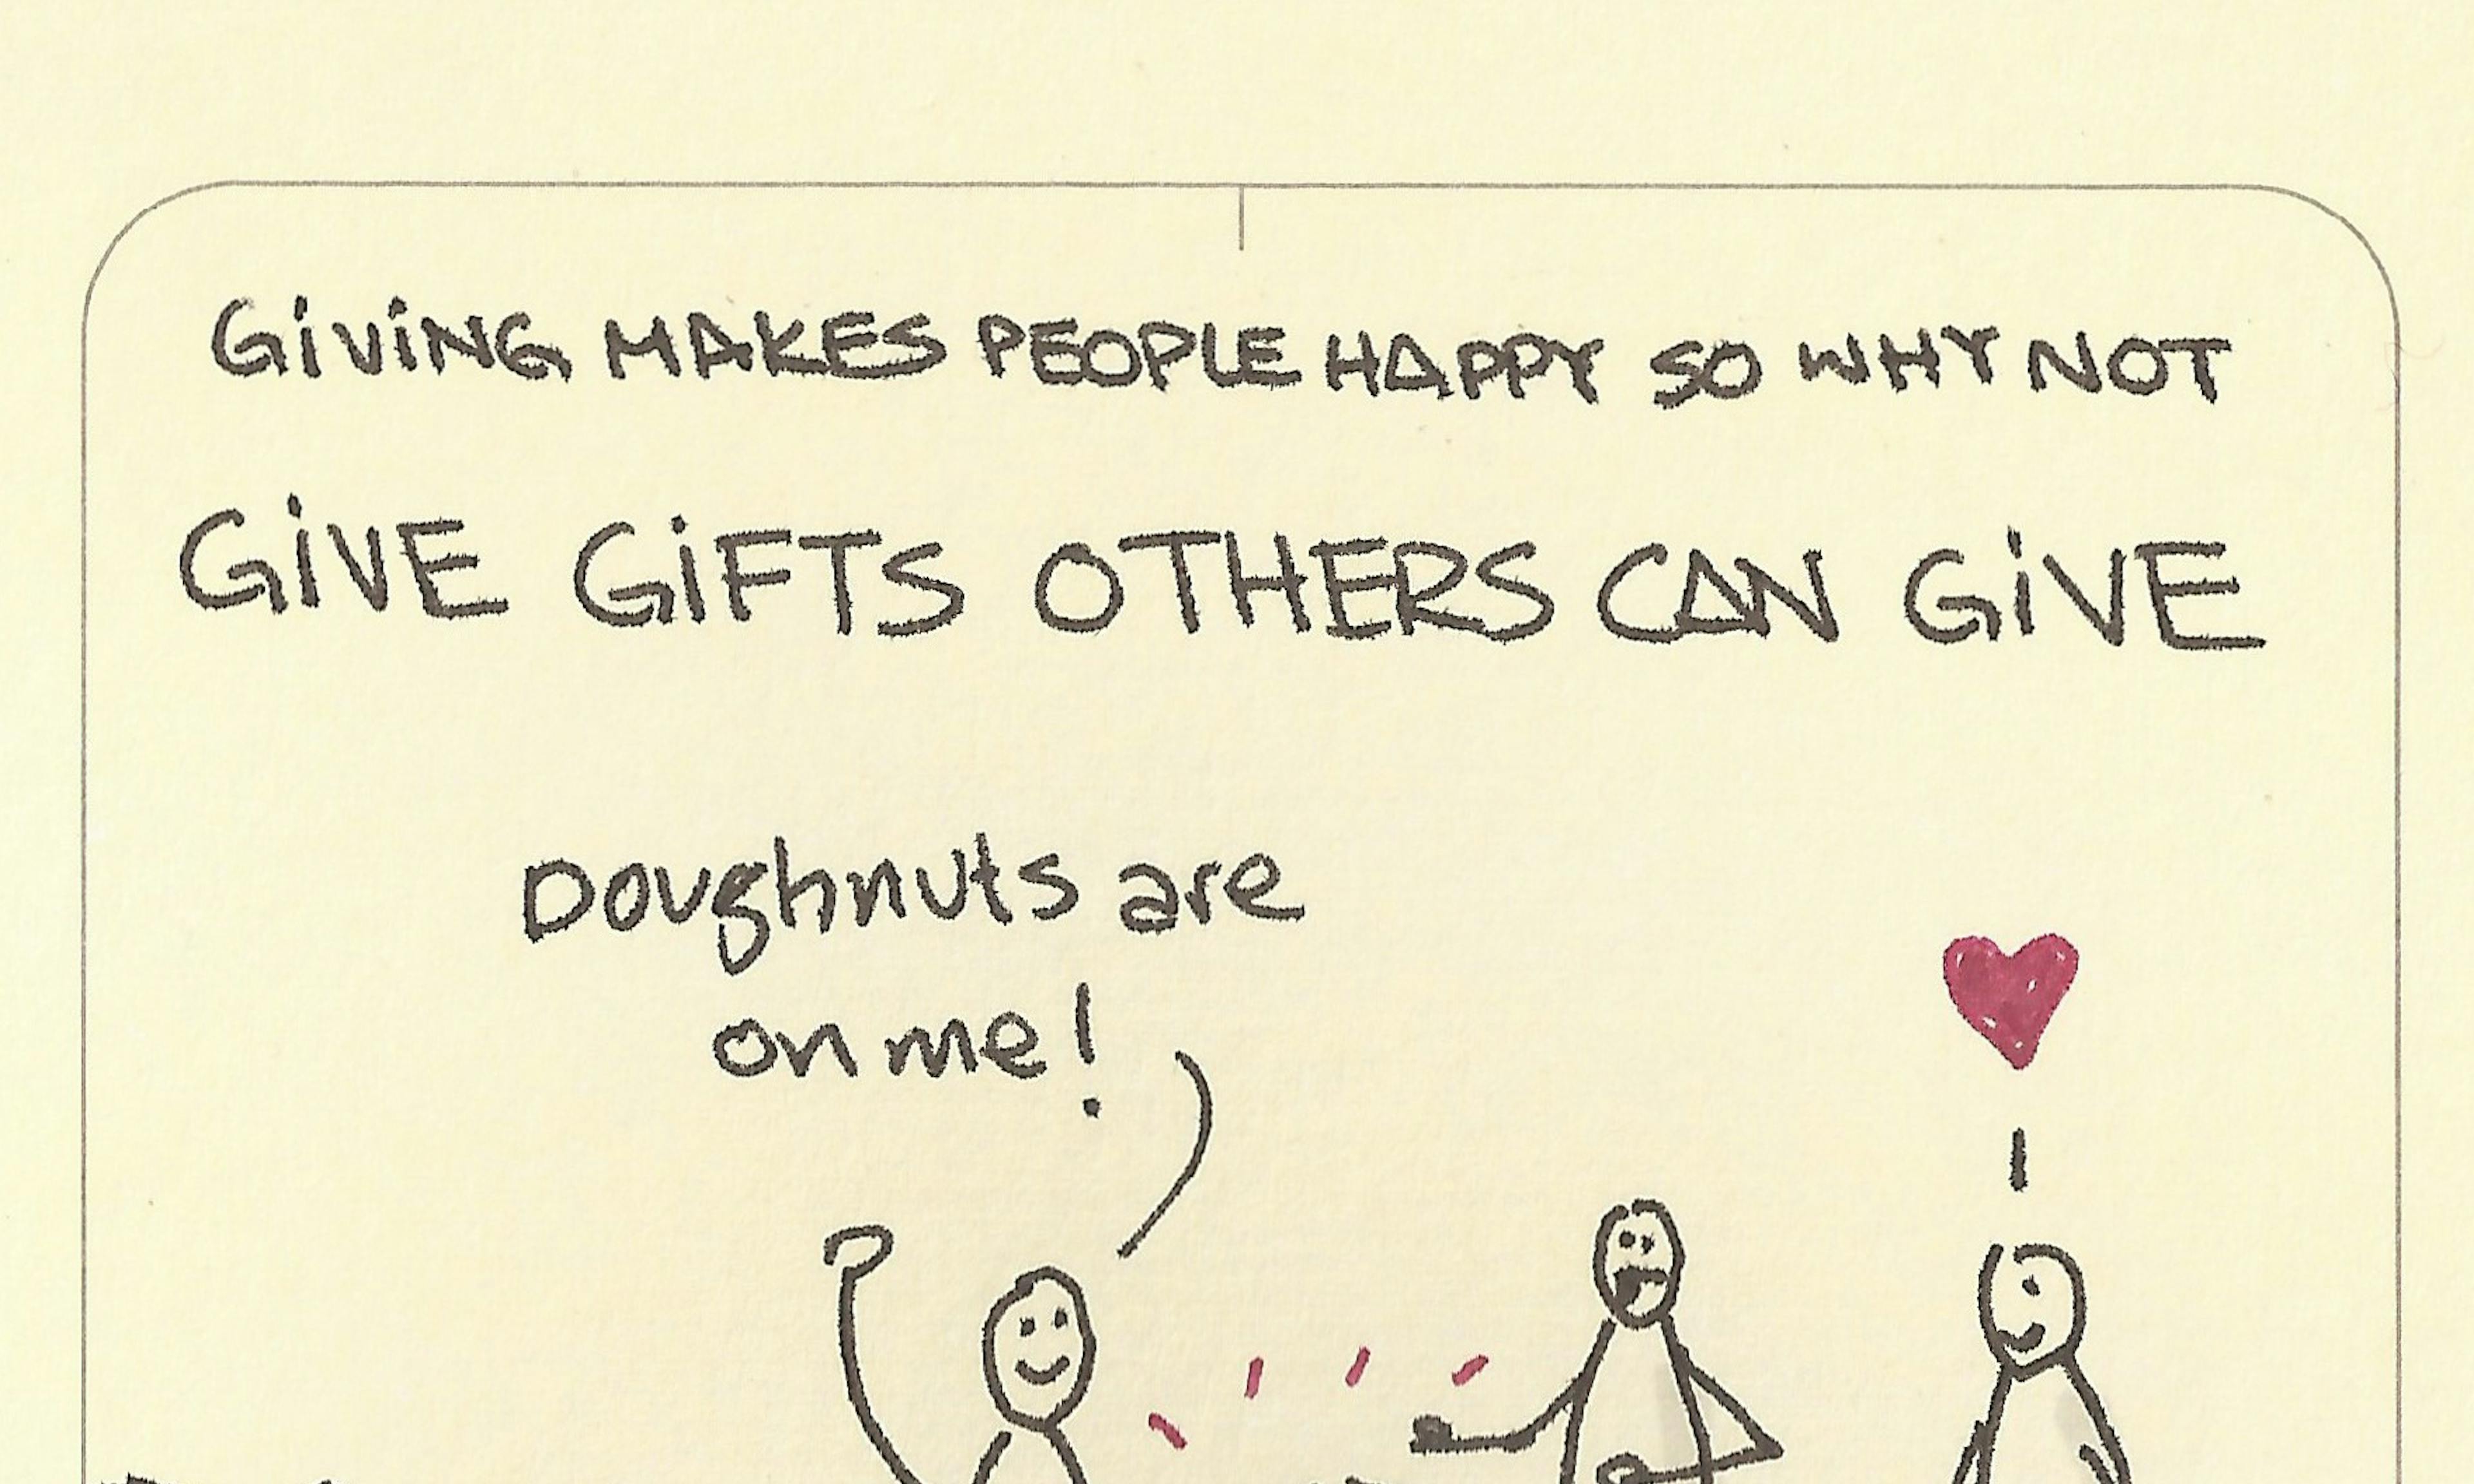 GIVING MAKES PEOPLE HAPPY SO WHY NOT
GIVE GIFTS OTHERS CAN GIVE
Doughnuts are
on me!